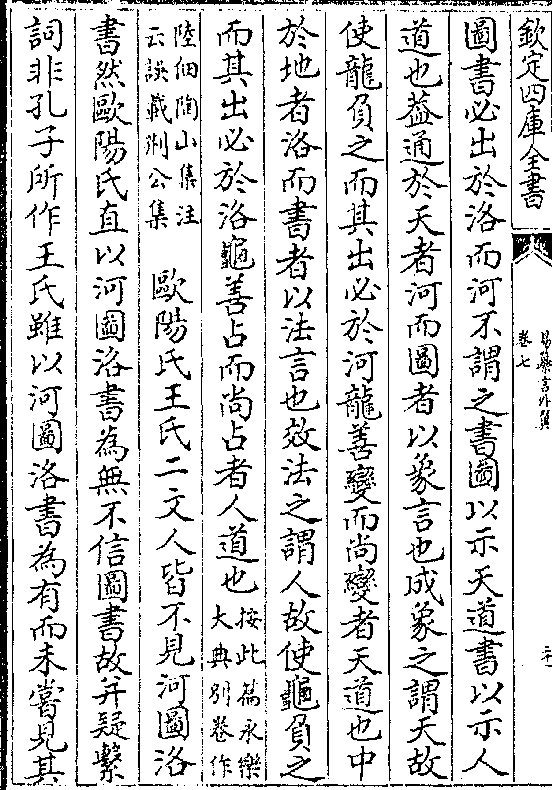 欽定四庫全書
易纂言外翼
卷七
圖書必出於洛而河不謂之書圖以示天道書以示人
道也葢通於天者河而圖者以象言也成象之謂天故
使龍負之而其出必於河龍善變而尚變者天道也中
於地者洛而書者以法言也效法之謂人故使龜負之
而其出必於洛龜善占而尚占者人道也按此篇永樂
大典别卷作
陸佃陶山集注
云誤載荆公集
歐陽氏王氏二文人皆不見河圖洛
書然歐陽氏直以河圖洛書為無不信圖書故并疑繫
詞非孔子所作王氏雖以河圖洛書為有而未嘗見其